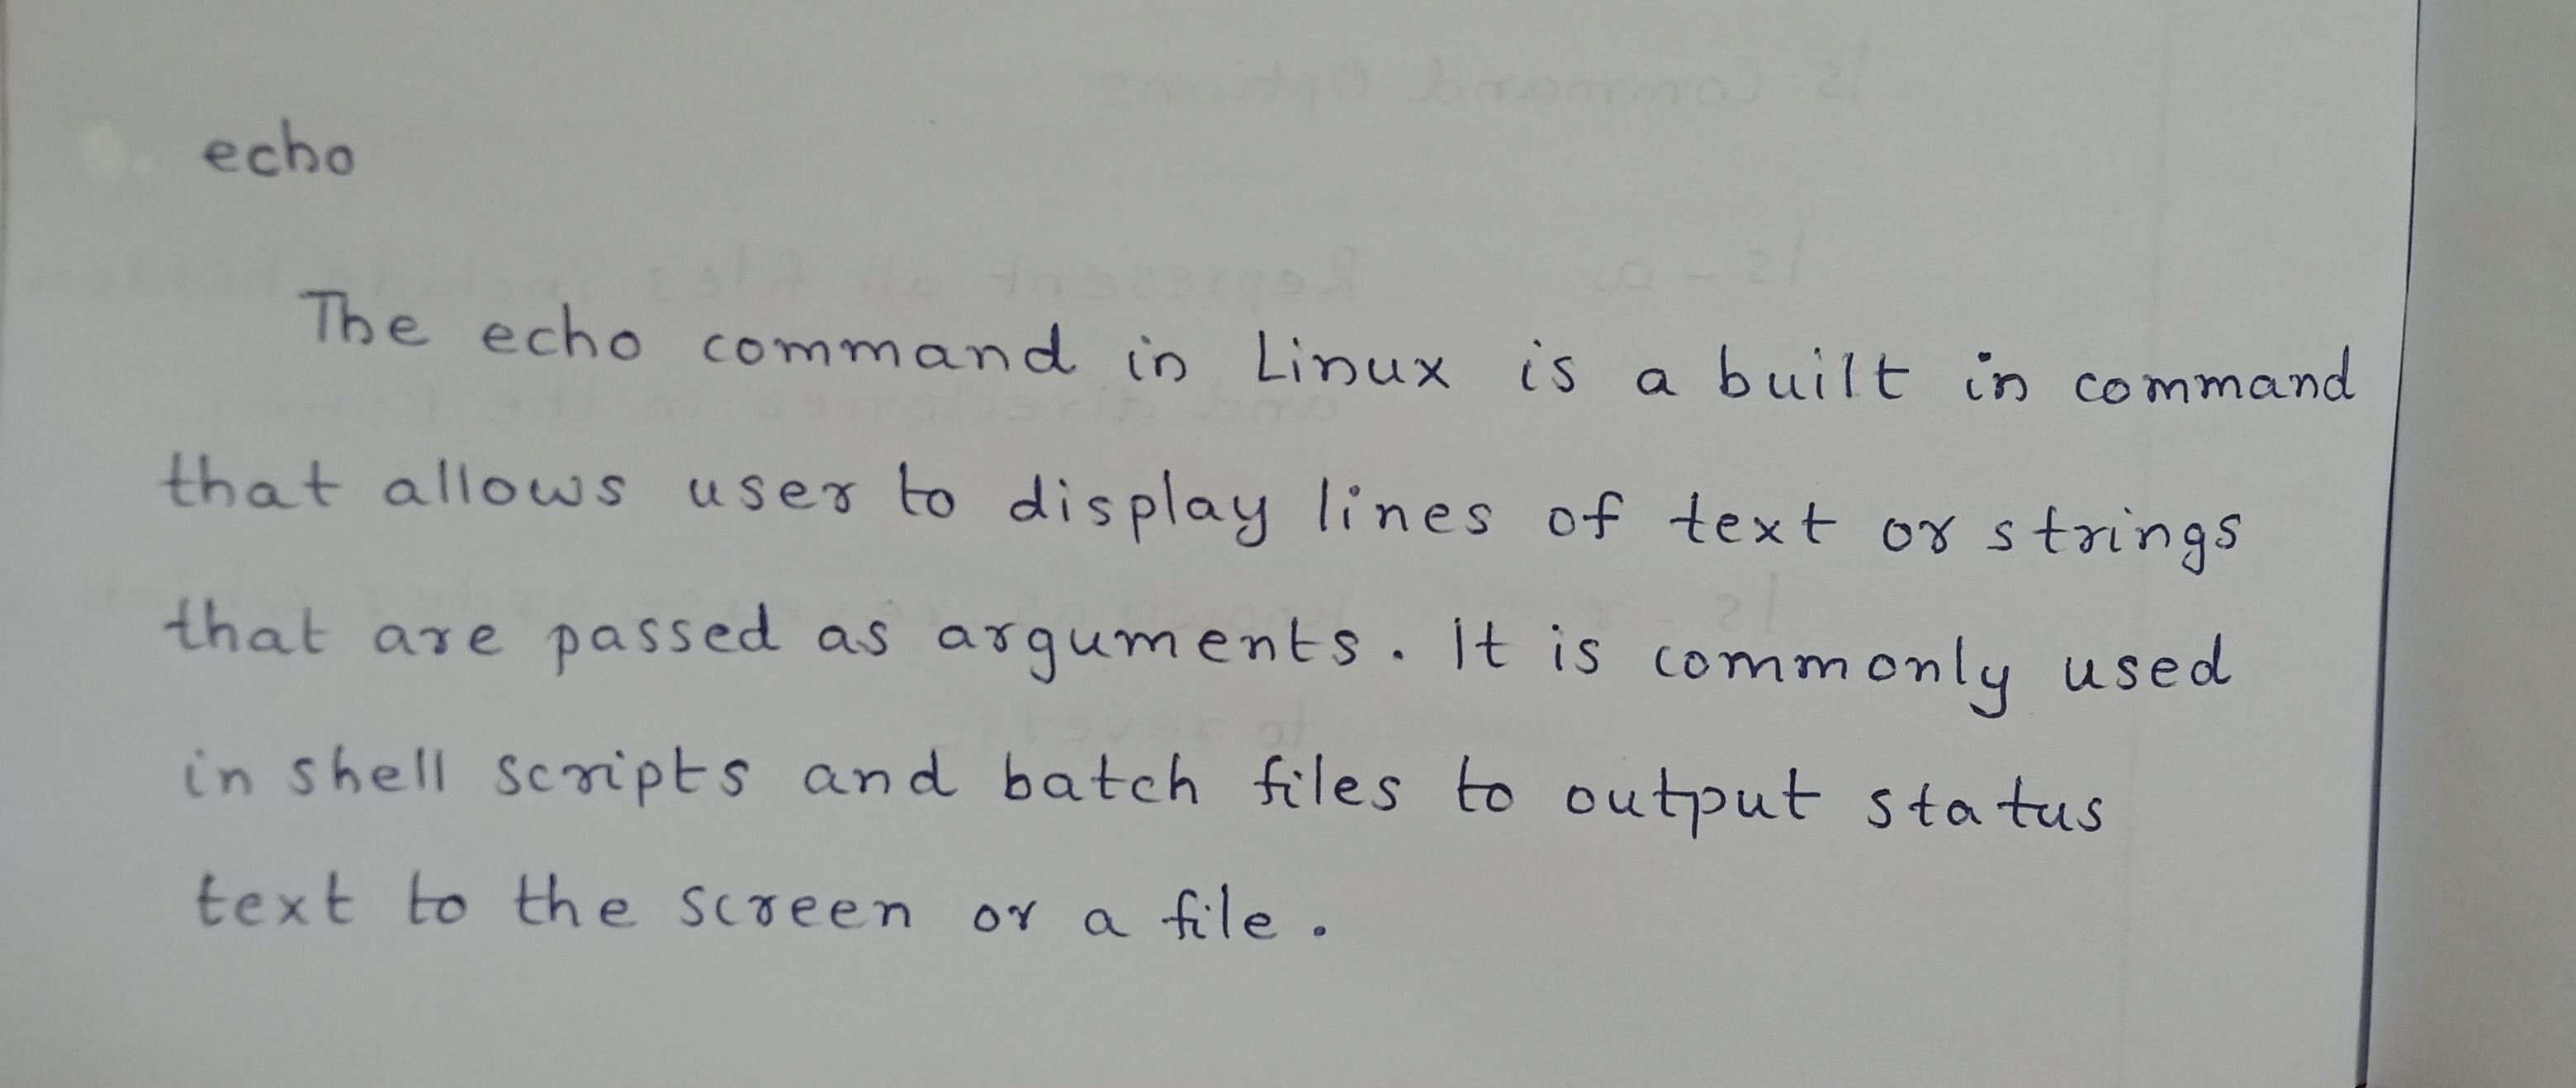 echo
The echo command in Linux is a built in command
that allows user to display lines of text or strings
that are passed as arguments. It is commonly used
in shell scripts and batch files to output status
text to the screen or a file.